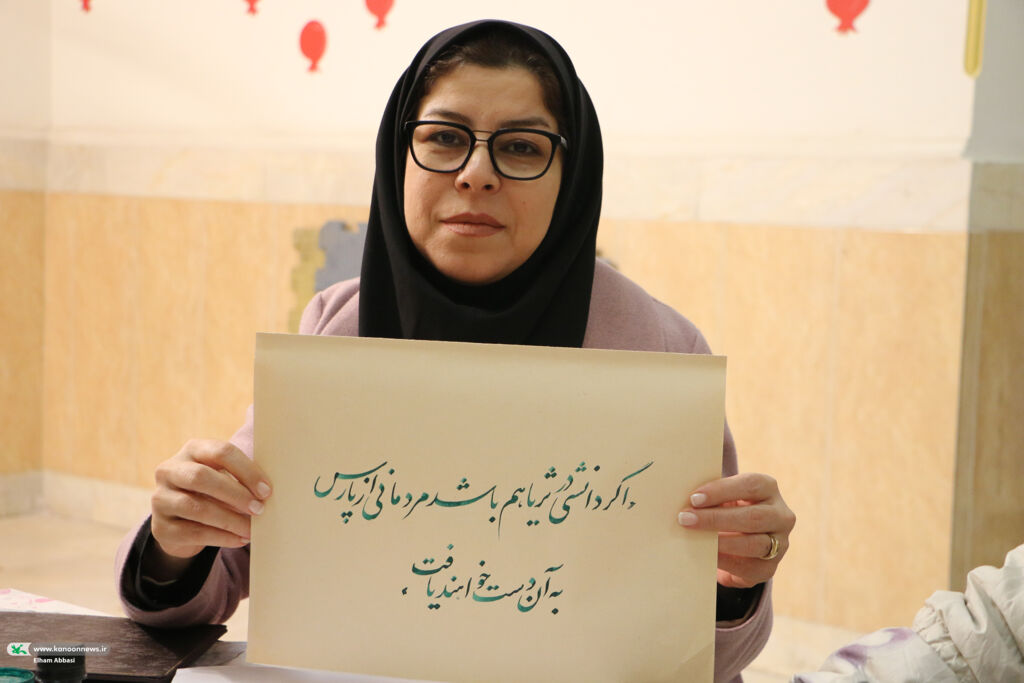 «اگر دانشی در ثریا هم باشد مردمانی از پارس
به آن دست خواهند یافت»
www.kanoonnews.ir
Elham Abbasi